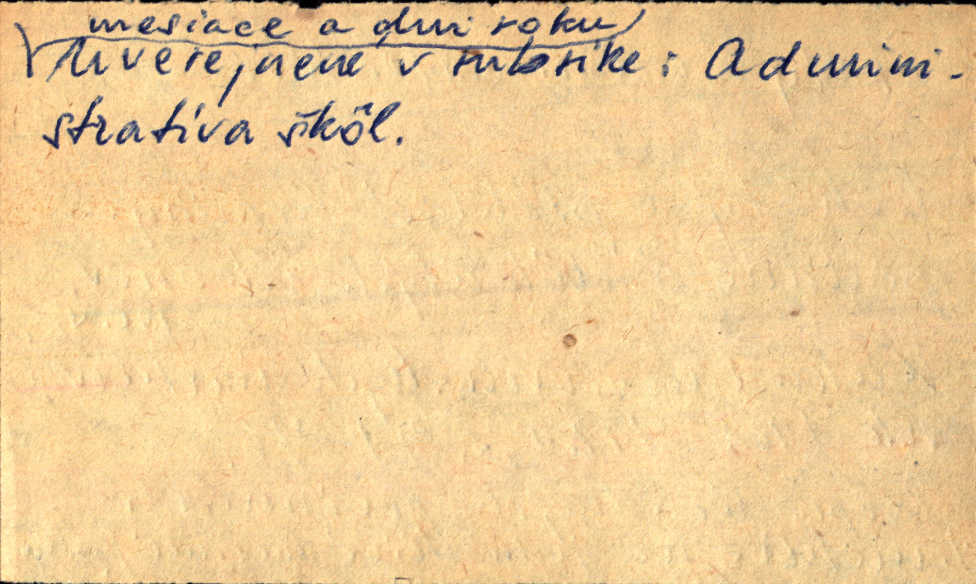 mesiace a dni roku
Uverejnené v rubrike: Admini-
strativa škôl.